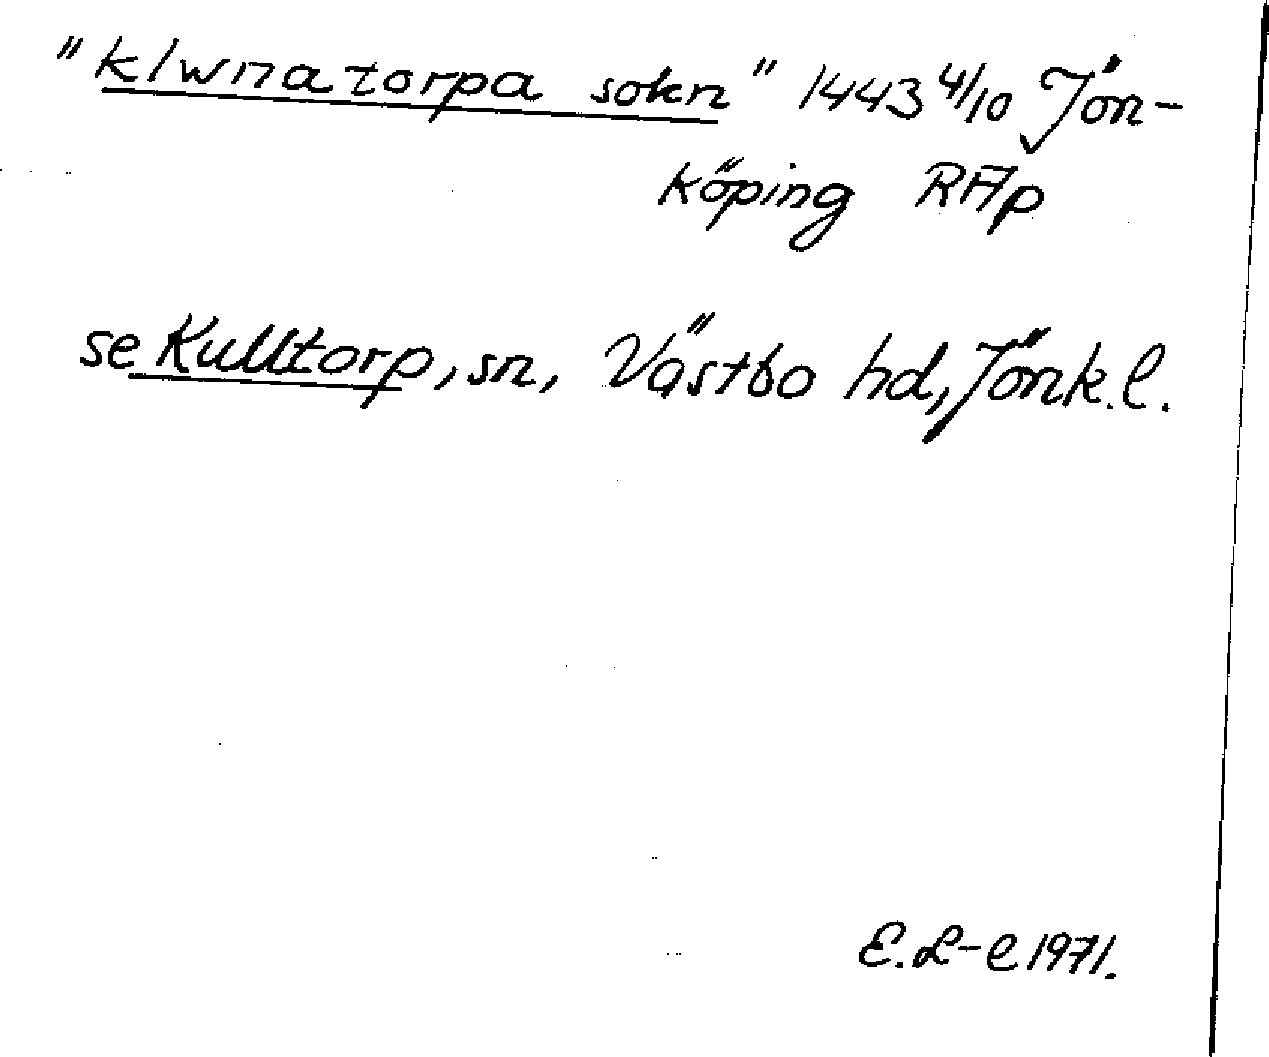 "klwnatorpa sokn" 1443 4/10 Jön-
köping RAp
se Kulltorp, sn, Västbo hd, Jönk.l.
E.L-e 1971.